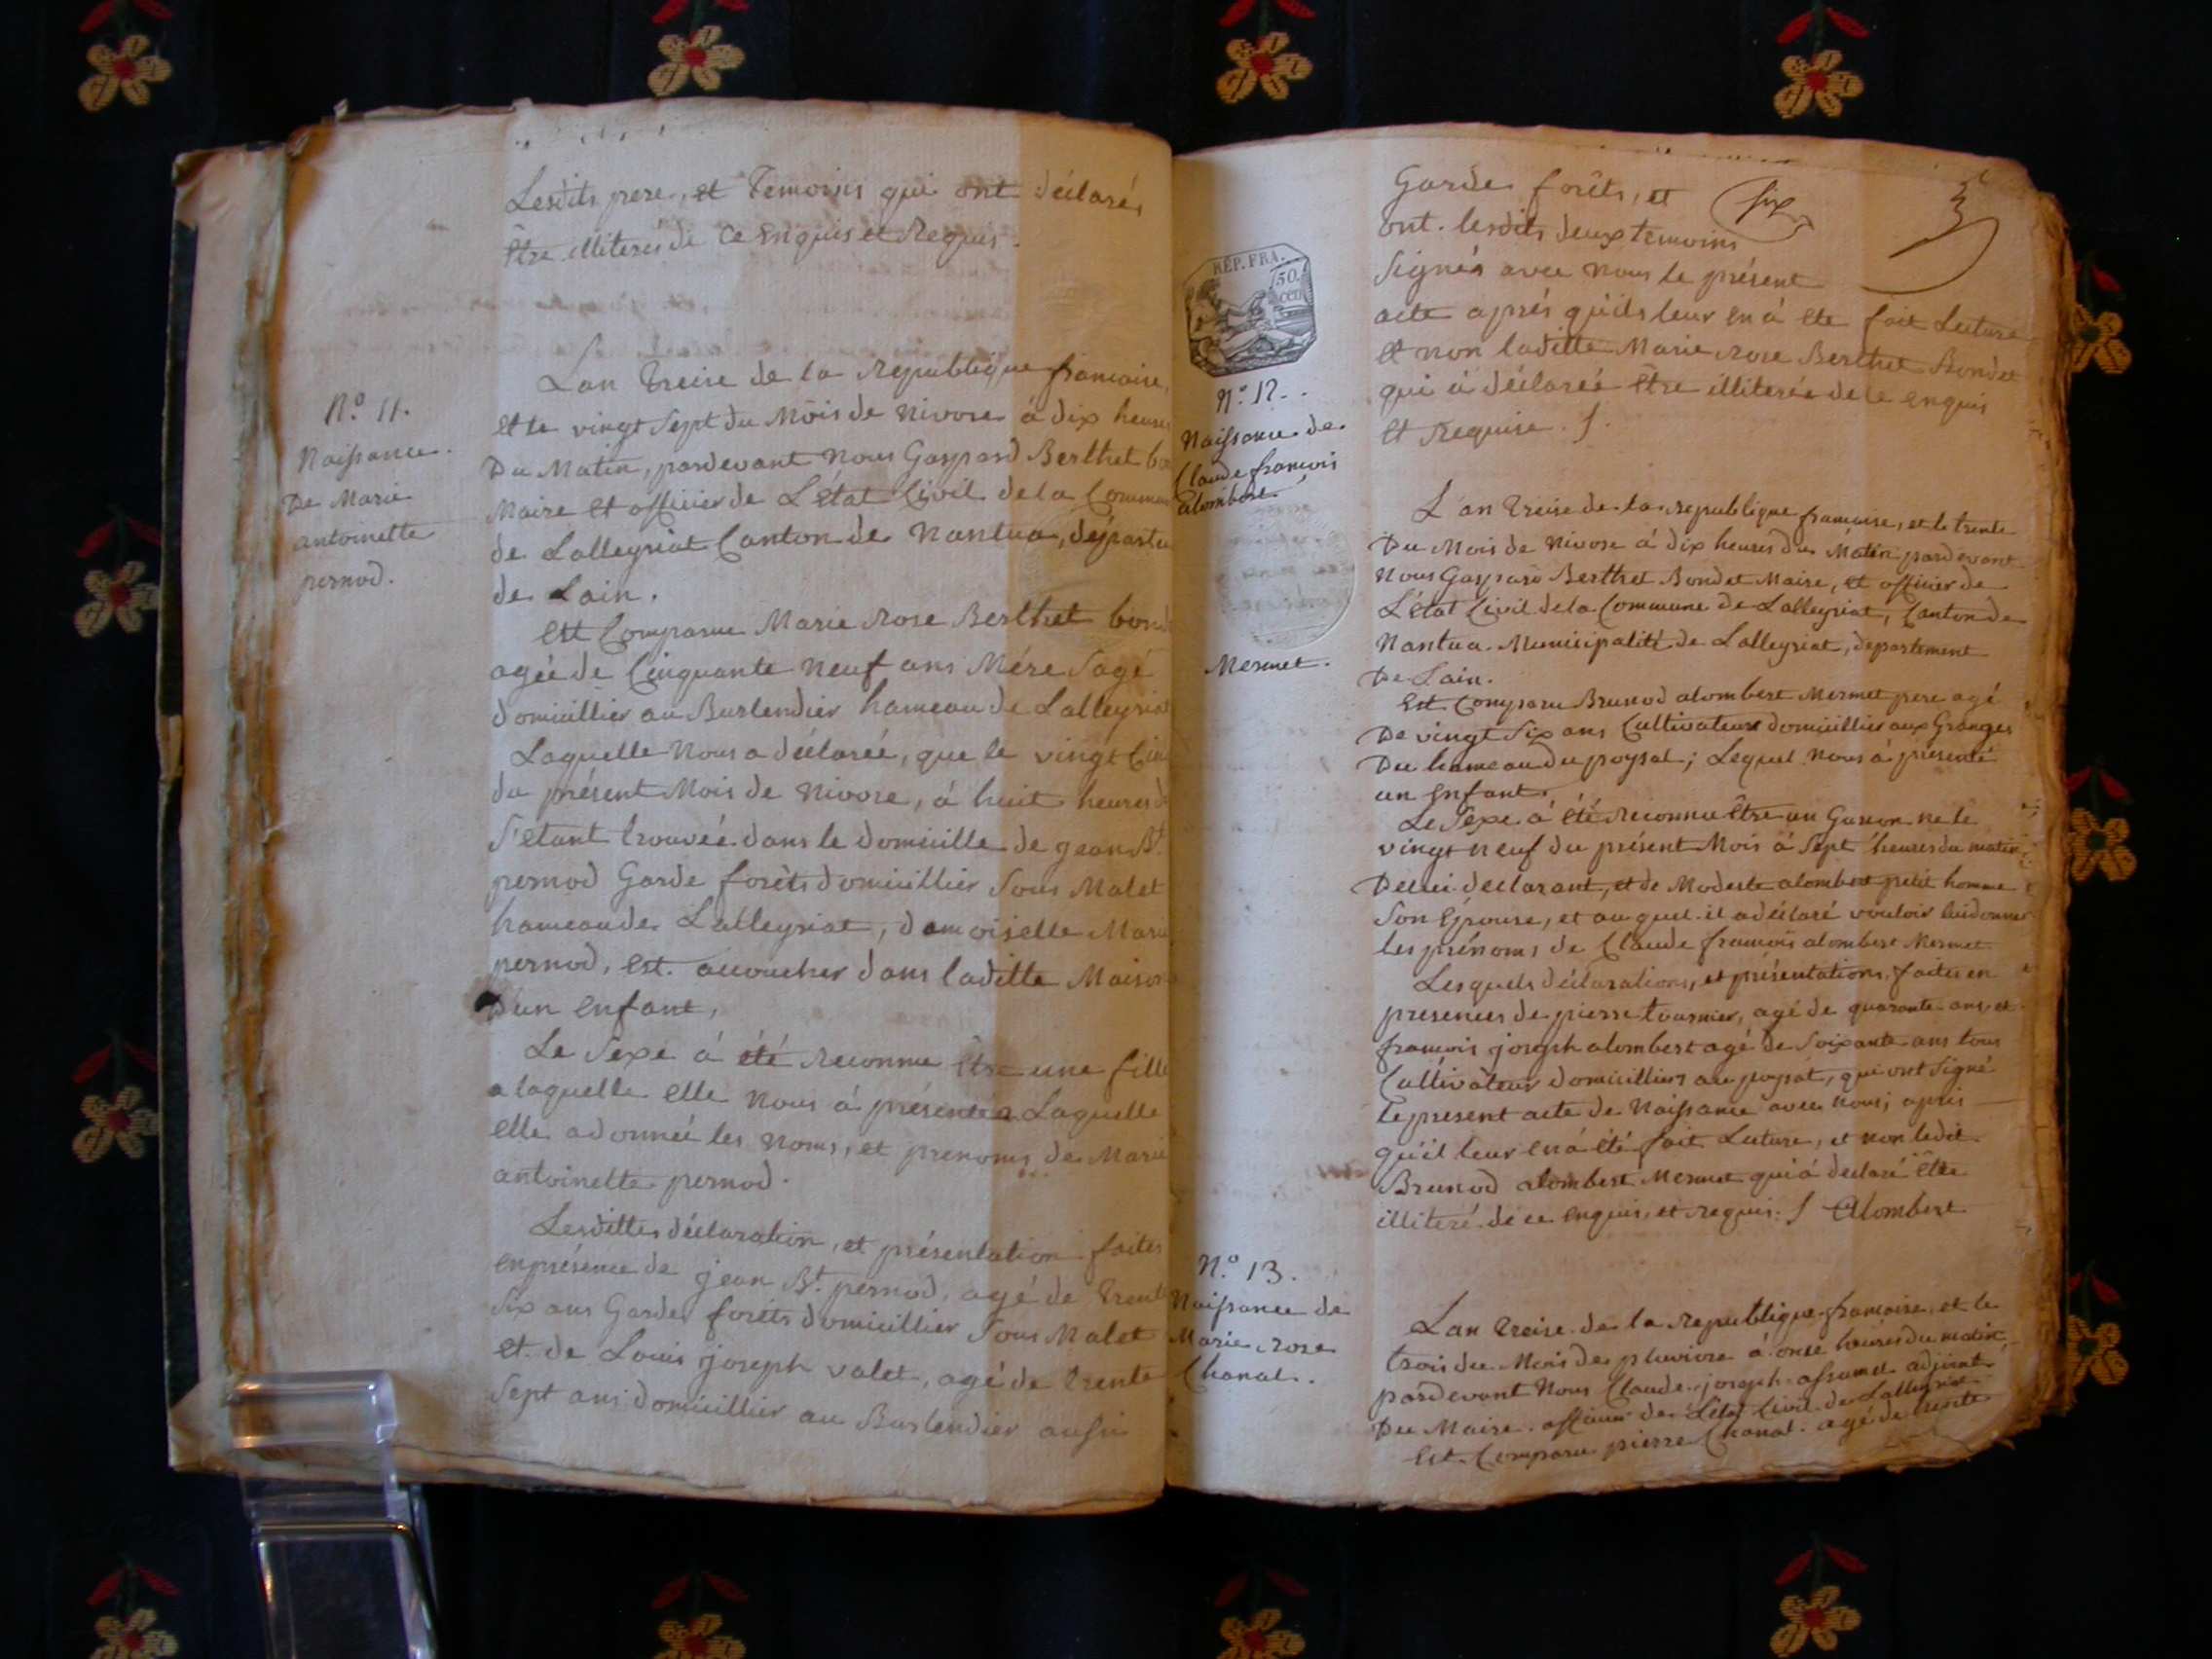 Lesdits pere, et Temoins qui ont déclarés
Être illiterés de ce Enquis et Requis.
N.º 11.
Naissance.
De Marie
antoinette
pernod.
Lan Treize de la Republique francaise,
et le vingt Sept du Mois de Nivose à dix heures
Du Matin, pardevant Nous Gaspard Berthet bon
Maire Et officier de L'état Civil de la Commun
de Lalleyriat Canton de Nantua, départe
de Lain.
Est Comparue Marie Rose Berthet bond
agée de Cinquante Neuf ans Mére Sagé
domicillier au Burlendier hameau de Lalleyriat
Laquelle Nous a déclareé, que le vingt Cin
du présent Mois de Nivose, á huit heures d
S'etant trouvée dans le domicille de jean Bt.
pernod Garde forêts domicillier Sous Malet
hameau de Lalleyriat, damoiselle Marie
pernod, Est. accoucher dans laditte Maison
D'un Enfant,
Le Sexe á été Reconnue Être une fille
a laquelle Elle Nous á présentéa Laquelle
elle a donneé les Noms, et prenoms de Marie
antoinette pernod.
Lesdittes déclaration, et présentation faites
enprésence de jean Bt. pernod, agé de trente
Six ans Garde forêts domicillier Sous Malet
et de Louis joseph valet, agé de trente
Sept ans domicillier au Burlendier aussi
Garde forêts, et
six
3
ont. lesdits deux temoins
Signés avec Nous le présent
acte aprés qu'ils leur en á ete fait Lecture
et non laditte Marie Rose Berthet Bondet
qui á déclareé Être illiterée de ce enquis
Et Requise.
RÉP. FRA.
50.
cen
N.º 12.
Naissance de
Claude francois
alombert
Mermet.
L'an treize de la Republique francaise, et le trente
Du Mois de Nivose á dix heures du Matin pardevant
Nous Gaspard Berthet Bondet Maire, et officier de
L'état Civil de la Commune de Lalleyriat, Canton de
Nantua Municipalité de Lalleyriat, departement
De Lain.
Est Comparu Brunod alombert Mermet pere agé
De vingt Six ans Cultivateur domicillier aux Granges
Du hameau Du poysat; Lequel Nous á présenté
un Enfant.
Le Sexe á été reconnu être un Garson ne le
vingt neuf du présent Mois á Sept heures du matin
De lui declarant, et de Modeste alombert petit homme
Son Epouse, et au quel il a déclaré vouloir lui donner
les prénoms de Claude francois alombert Mermet
Lesquels déclarations, et présentations, faites en
presences de pierre tournier, agé de quarante ans, et
francois joseph alombert agé de Soixante ans tous
Cultivateur domicilliers au poysat, qui ont Signé
le present acte de Naissance avec nous; apres
qu'il leur en á été fait Lecture, et non ledit
Brunod alombert Mermet qui á declaré être
illiteré de ce enquis, et requis. Alombert
N.º 13.
Naissance de
Marie, rose
Chanal.
Lan treize de la Republique francaise, et le
trois du Mois de pluviose á onze heures du matin,
pardevant Nous Claude joseph assand adjoint
Du Maire officier de L'état Civil de Lalleyriat
Est Comparu pierre Chanal. agé de trente